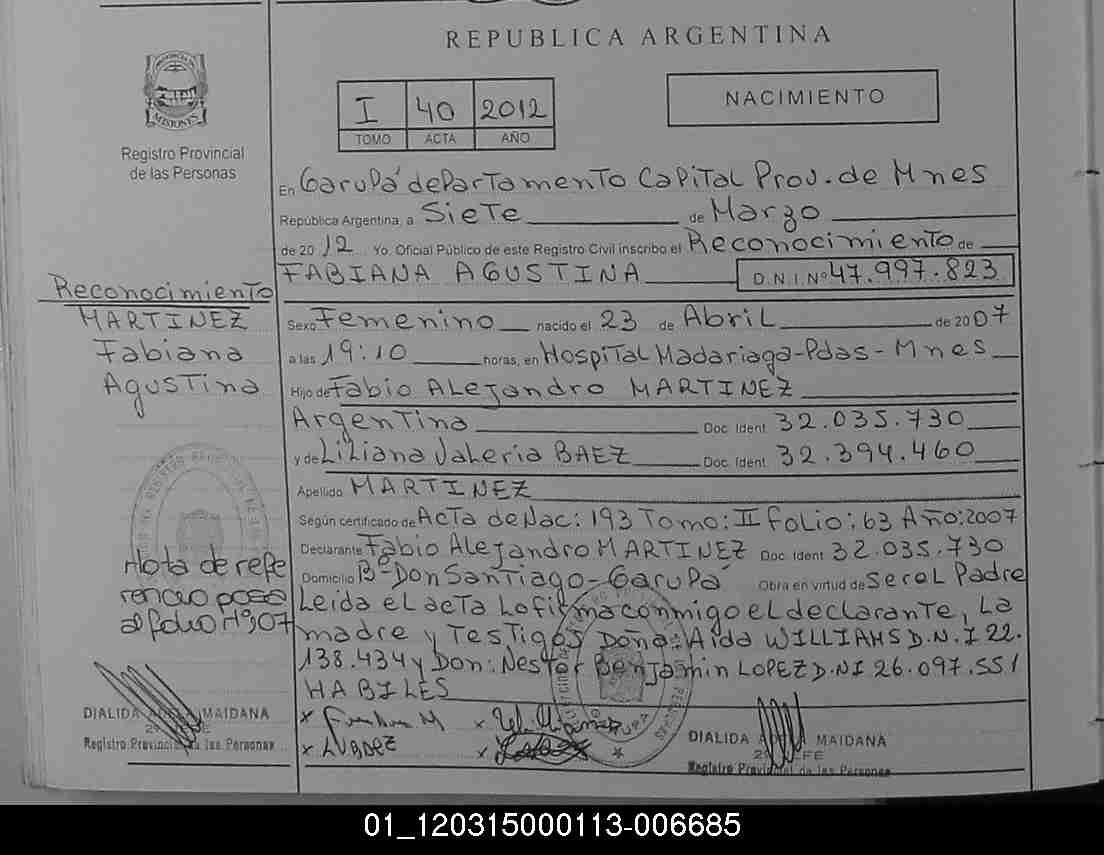 REPUBLICA ARGENTINA
PROVINCIA DE
MISIONES
Registro Provincial
de las Personas
I 40 2012
TOMO ACTA AÑO
NACIMIENTO
En Garupá departamento Capital Prov. de Mnes
República Argentina, a Siete de Marzo
de 2012 Yo, Oficial Público de este Registro Civil inscribo el Reconocimiento de
FABIANA AGUSTINA D.N.I. Nº 47.997.823
Reconocimiento
MARTINEZ
Fabiana
Agustina
Sexo Femenino nacido el 23 de Abril de 2007
a las 19:10 horas, en Hospital Madariaga-Pdas-Mnes
Hijo de Fabio Alejandro MARTINEZ
Argentina Doc. Ident. 32.035.730
y de Liliana Valeria BAEZ Doc. Ident. 32.394.460
Apellido MARTINEZ
Según certificado de Acta de Nac: 193 Tomo: II Folio: 63 Año: 2007
Declarante Fabio Alejandro MARTINEZ Doc. Ident. 32.035.730
Domicilio Bº Don Santiago-Garupá Obra en virtud de Ser el Padre
Leida el acta la firma conmigo el declarante, La
madre y Testigos Doña: Aida WILLIAMS D.N.I 22.
138.434 y Don: Nestor Benjamin LOPEZ D.NI 26.097.551
HABILES
Nota de refe
rencia pasa
al folio Nº 07
DIALIDA MAIDANA
JEFE
Registro Provincial de las Personas
DIALIDA MAIDANA
JEFE
Registro Provincial de las Personas
01_120315000113-006685